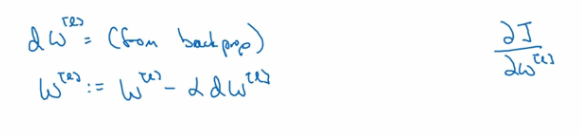 dW^[l] = (from backprop)
W^[l] := W^[l] - α dW^[l]
∂J
∂W^[l]